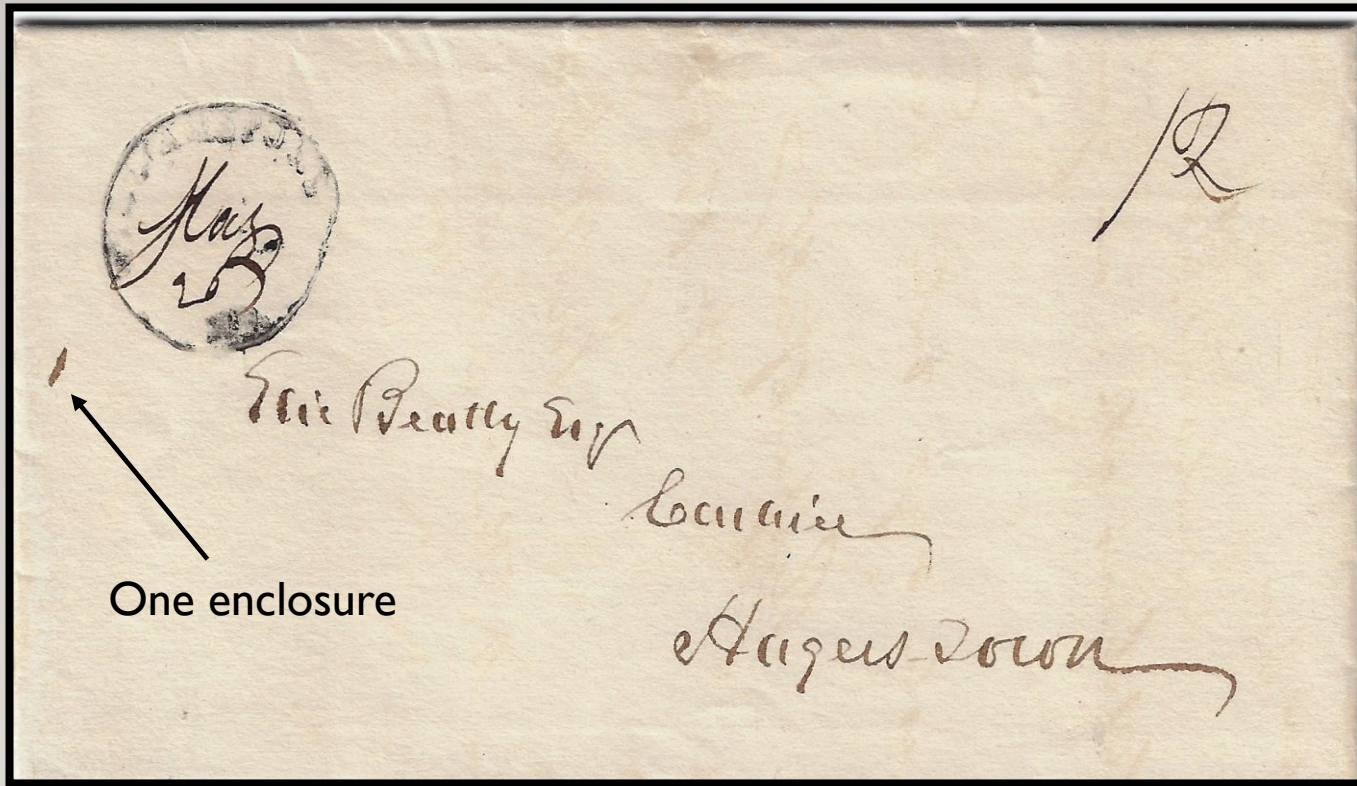 May
25
12
Elie Beatty Esq
Cashier
Hagers Town
One enclosure